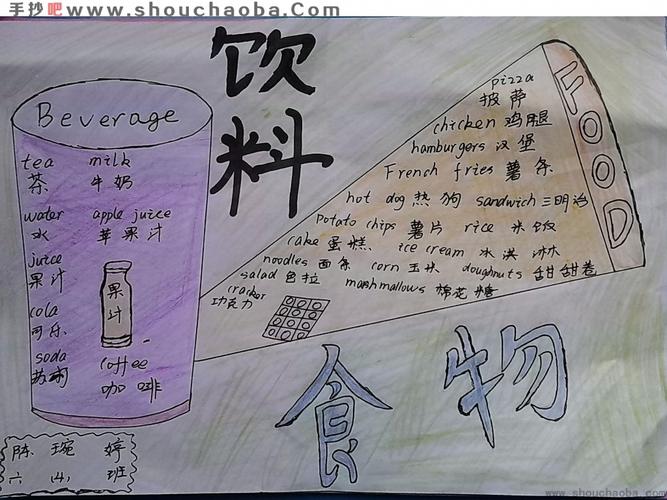 手抄吧www.shouchaoba.com
饮料
Beverage
tea milk
茶 牛奶
water apple juice
水 苹果汁
juice
果汁
果汁
cola
可乐
soda coffee
咖啡
陈琬婷
六(4)班
FOOD
pizza
披萨
chicken 鸡腿
hamburgers 汉堡
French fries 薯条
hot dog 热狗 sandwich 三明治
potato chips 薯片 rice 米饭
cake 蛋糕 ice cream 冰淇淋
noodles 面条 corn 玉米 doughnuts 甜甜卷
salad 色拉 marshmallows 棉花糖
cracker
功克力
食物
www.shouchaoba.com